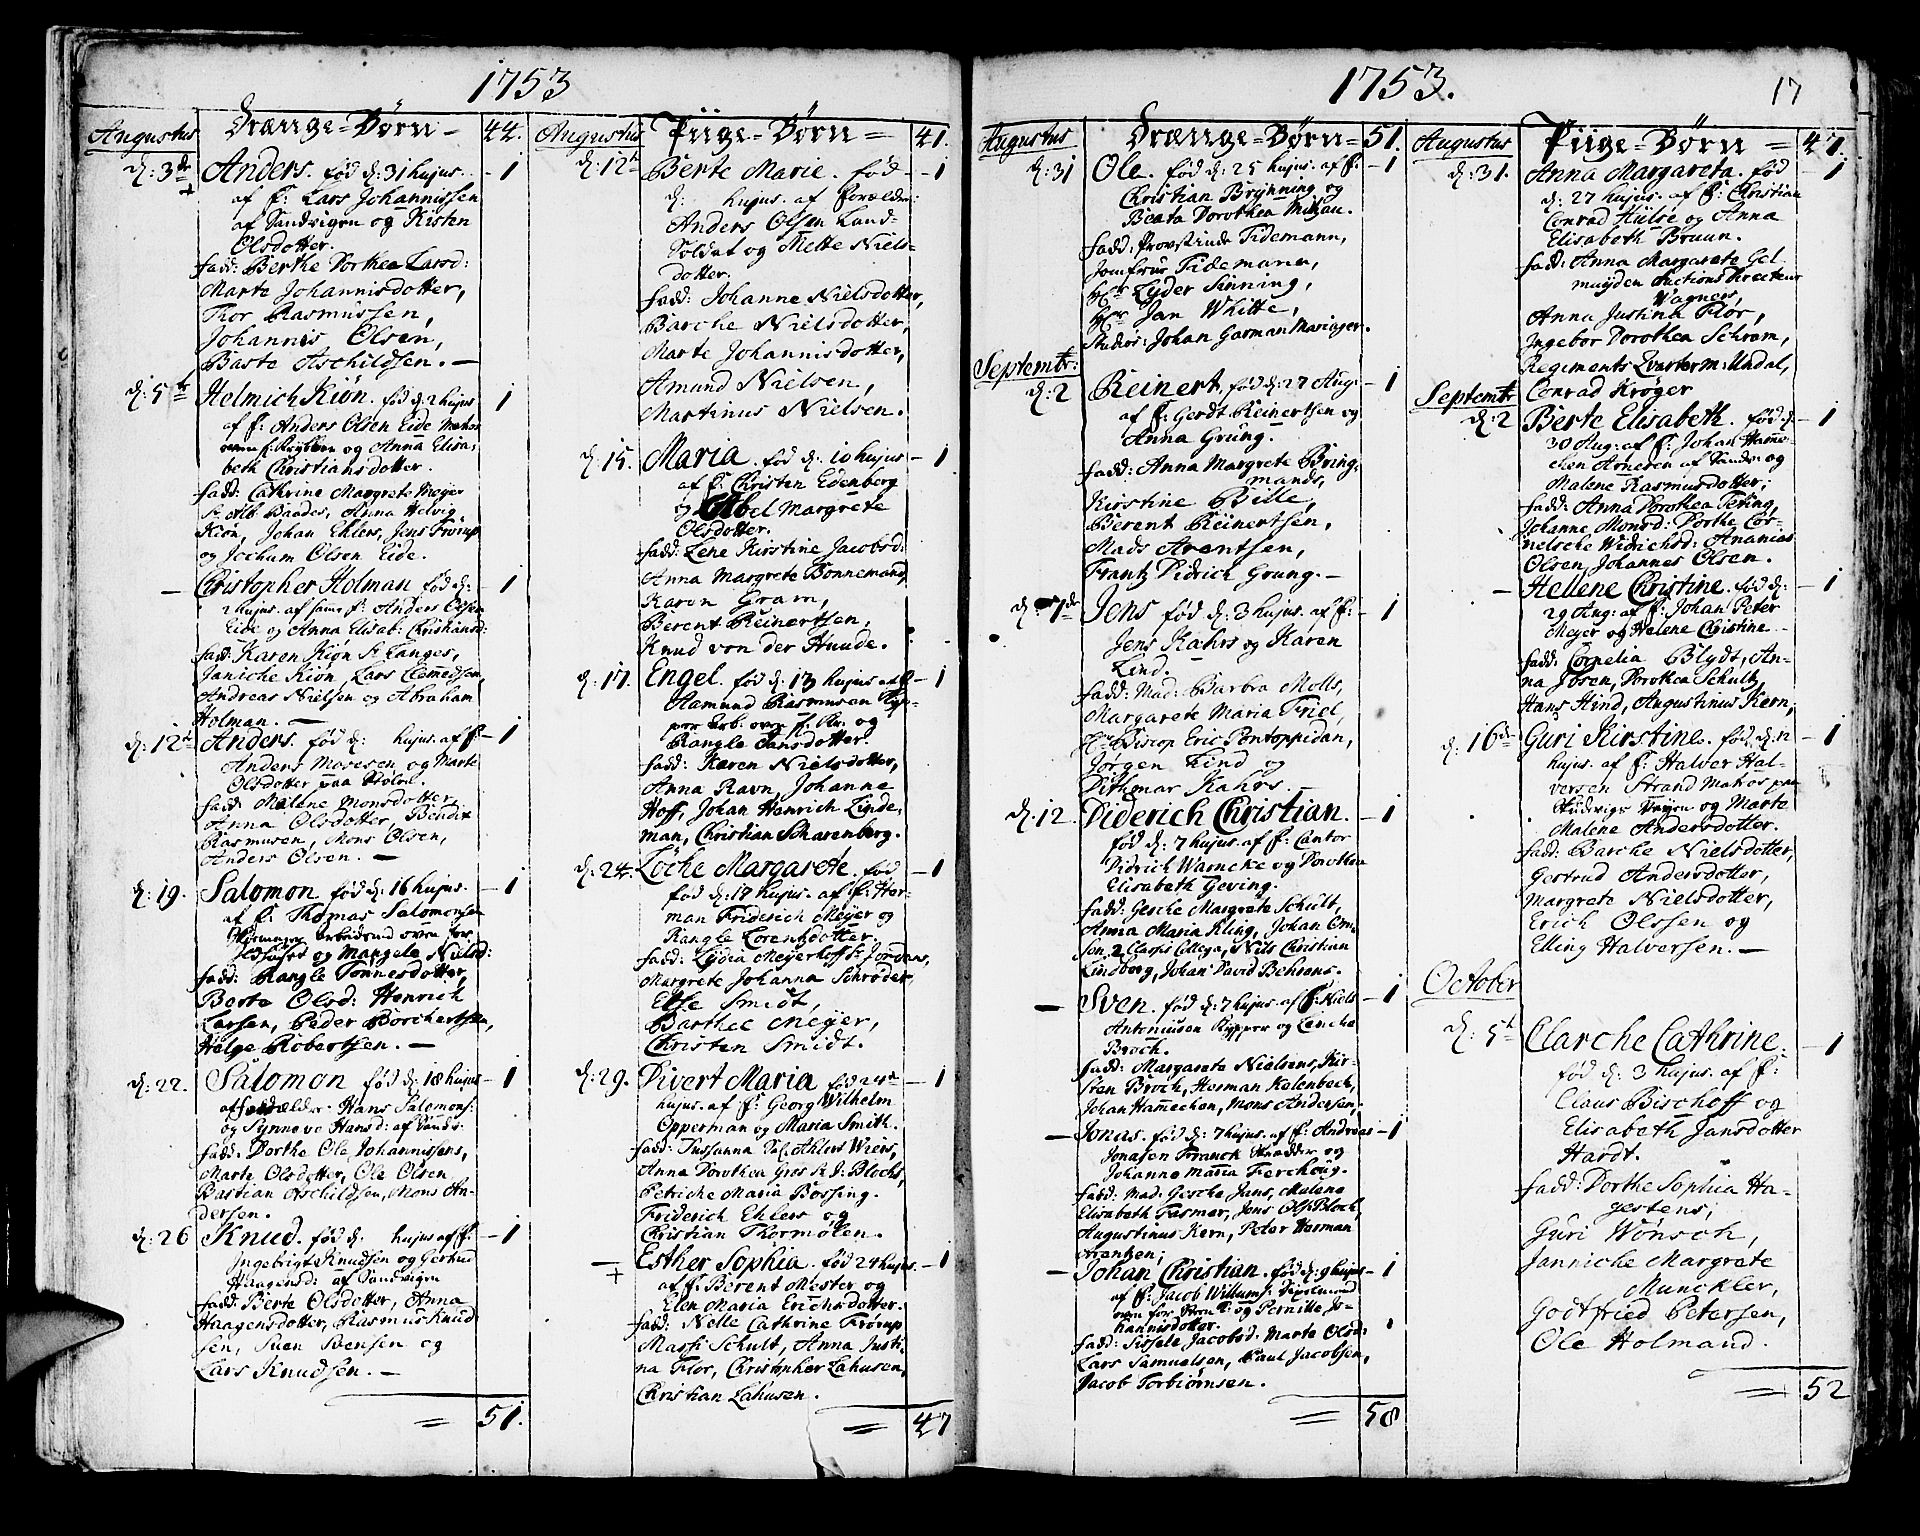 1753
Augustus
Drænge-Børn
44.
d: 3de
Anders. fød d: 31 hujus.
1
af F: Lars Johannissen
af Sandvigen og Kisten
Olsdotter.
fadd: Berthe Dorthea Larsd:
Marte Johannisdotter,
Thor Rasmussen,
Johannis Olsen,
Baste Aschildsen.
d: 5te
Helmich Kiøn. fød d: 2 hujus
1
af F: Anders Olsen Eide
og Anna Elisa-
beth Christiansdotter.
fadd: Cathrine Margrete Meyer
Sr. Alb. Baades, Anna Helvig
Kiøn, Johan Ehlers, Jens Frørup
og Jochum Olsen Eide.
Christopher Holman fød d:
1
2 hujus. af samme F: Anders Olsen
Eide og Anna Elisab: Christiansd:
fadd: Karen Kiøn Sr. Langes,
Janiche Kiøn, Lars Clemedsen,
Andreas Nielsen og Abraham
Holman.
d: 12te
Anders. fød d: hujus. af F:
1
Anders Mosesen og Marte
Olsdotter paa Holen.
fadd: Malene Monsdotter,
Anna Olsdotter, Bendit
Rasmusen, Mons Olsen,
Anders Olsen.
d: 19.
Salomon fød d: 16 hujus.
1
af F: Thomas Salomonsen
arbeidend oven for
og Mangele Nielsd:
fadd: Rangle Tønnesdotter,
Berte Olsd: Henrich
Larsen, Peder Borchertsen,
Helge Robertsen.
d: 22.
Salomon fød d: 18 hujus
1
af forældre Hans Salomons:
og Synneve Hansd: af Sandv:
fadd: Dorthe Ole Johannissens,
Marte Olsdotter, Ole Olsen
Bastian Aschildsen, Mons An-
dersen.
d: 26
Knud. fød d: hujus af F:
1
Ingebrigt Knudsen og Gertrud
Haagensd: af Sandvigen
fadd: Berte Olsdotter, Anna
Haagensdotter, Rasmus Knud
sen, Sven Svensen og
Lars Knudsen.
= 51.
Augustus
Piige-Børn
41.
d: 12te
Berte Marie. fød
1
d: hujus. af Forældre:
Anders Olsen Land-
Soldat og Mette Niels-
dotter.
fadd: Johanne Nielsdotter,
Barche Nielsdotter,
Marte Johannisdotter,
Amund Nielsen,
Martinus Nielsen.
d: 15.
Maria. fød d: 10 hujus
1
af F: Christen Edenberg
og Abel Margrete
Olsdotter.
fadd: Lene Kirstine Jacobsd:
Anna Margrete Bonnemand,
Karen Gram,
Berent Reinertsen,
Knud von der Huude.
d: 17.
Engel. fød d: 13 hujus af F
1
Aamund Rasmusen
og
Rangle Jansdotter.
fadd: Karen Nielsdotter,
Anna Ravn, Johanne
Hoff, Johan Henrich Linde,
man, Christian Scharenberg.
d: 24.
Løche Margarete. fød
1
fød d: 19 hujus. af F: Her-
man Friderich Meyer og
Rangle Lorentzdotter.
fadd: Lydia Meyerhoff Sr. Jordans,
Margrete Johanna Schrøder,
Else Smidt,
Barthee Meyer,
Christen Smidt.
d: 29.
Divert Maria fød 24de
1
hujus. af F: Georg Wilhelm
Opperman og Maria Smith.
fadd: Sussanna Sal. Ahlert Wiers,
Anna Dorothea Gras Sr. J: Blochs,
Petriche Maria Bossing.
Friderich Ehlers og
Christian Thormølen.
Esther Sophia. fød 24 hujus.
1
af F: Berent Mester og
Elen Maria Erichsdotter.
fadd: Nelle Cathrine Frørup
Marsi Schult, Anna Justi
na Flor, Christopher Lahusen,
Christian Lahusen.
= 47
1753.
17
Augustus
Drænge-Børn
51.
d: 31
Ole. fød d: 25 hujus. af F:
1
Christian Brynning og
Beata Dorothea Miltzau.
fadd: Provstinde Tidemann,
Jomfrue Tidemann,
Hr Lyder Sinning,
Hr Jan Whitte,
Studios: Johan Garman Mariager.
Septembr:
d: 2
Reinert. fød d: 27 Aug:
1
af F: Gerdt Reinertsen og
Anna Grung.
fadd: Anna Margrete Bring,
mands,
Kirstine Bille,
Berent Reinertsen,
Mads Arentsen,
Frantz Didrich Grung.
d: 7de
Jens fød d: 3 hujus. af F:
1
Jens Kahrs og Karen
Lind.
fadd: Mad: Barbra Molls,
Margarete Maria Friel,
Hr Biscop Eric Pontoppidan,
Jørgen Lind og
Dithmar Kahrs.
d. 12.
Diderich Christian.
1
fød d: 7 hujus. af F: Cantor
Didrich Warncke og Dorothea
Elisabeth Geving.
fadd: Gesche Margrete Schult,
Anna Maria Kling, Johan Om-
sen 2 Classis Collega, Nils Christian
Lindberg, Johan David Behrens.
Sven. fød d: 7 hujus. af F: Niels
1
Antoniusen Kypper og Lenche
Broch.
fadd: Margarete Nielsens, Kir-
sten Broch, Herman Kalenbeck,
Johan Hamechen, Mons Andersen.
Jonas. fød d: 7 hujus. af F: Andreas
1
Jonasen Franck Skrædder og
Johanne Maria Fierchoug.
fadd: Mad: Gesche Jans, Malene
Elisabeth Fasmer, Jens Ols: Bloch,
Augustinus Kern, Peter Herman
Arenken;
Johan Christian. fød d: 9 hujus
1
af F: Jacob Willums:
og Pernille Jo-
hannisdotter.
fadd: Sissele Jacobsd: Marte Olsd:
Lars Samuelsen, Paul Jacobsen,
Jacob Torbiørnsen.
= 58
Augustus
Piige-Børn
47.
d: 31.
Anna Margareta. fød
1
d: 27 hujus. af F: Christian
Conrad Hülse og Anna
Elisabeth Bruun.
fadd: Anna Margarete Gel
muyden Auctions Directeur
Wagners,
Anna Justina Flor,
Ingebor Dorothea Schrøm,
Regiments Qvarterm: Undal,
Conrad Krøger
Septembr
d: 2
Berte Elisabeth. fød
1
30 Aug: af F: Johan Hame-
chen Arnesen af Sandv: og
Malene Rasmusdotter;
fadd: Anna Dorothea Teting,
Johanne Monsd: Dorthe Cor-
nelsche Widrichsd: Ananias
Olsen, Johannes Olsen.
Hellene Christine. fød d:
1
29 Aug: af F: Johan Peter
Meyer og Helene Christine
fadd: Cornelia Blydt, An-
na Ibsen, Dorothea Schultz,
Hans Hind, Augustinus Kern,
d: 16de
Guri Kirstine. fød d: 12
1
hujus. af F: Halver Hal-
versen Strand
og Marte
Malene Andersdotter.
fadd: Barche Nielsdotter,
Gertrud Andersdotter,
Margrete Nielsdotter,
Erich Olssen og
Elling Halversen.
October
d: 5te
Clarche Cathrine.
1
fød d: 3 hujus. af F:
Claus Bischoff og
Elisabeth Jansdotter
Hardt.
fadd: Dorthe Sophia Ha-
gestens;
Guri Wønsch,
Janniche Margrete
Munckler,
Godtfried Petersen,
Ole Holmand.
= 52